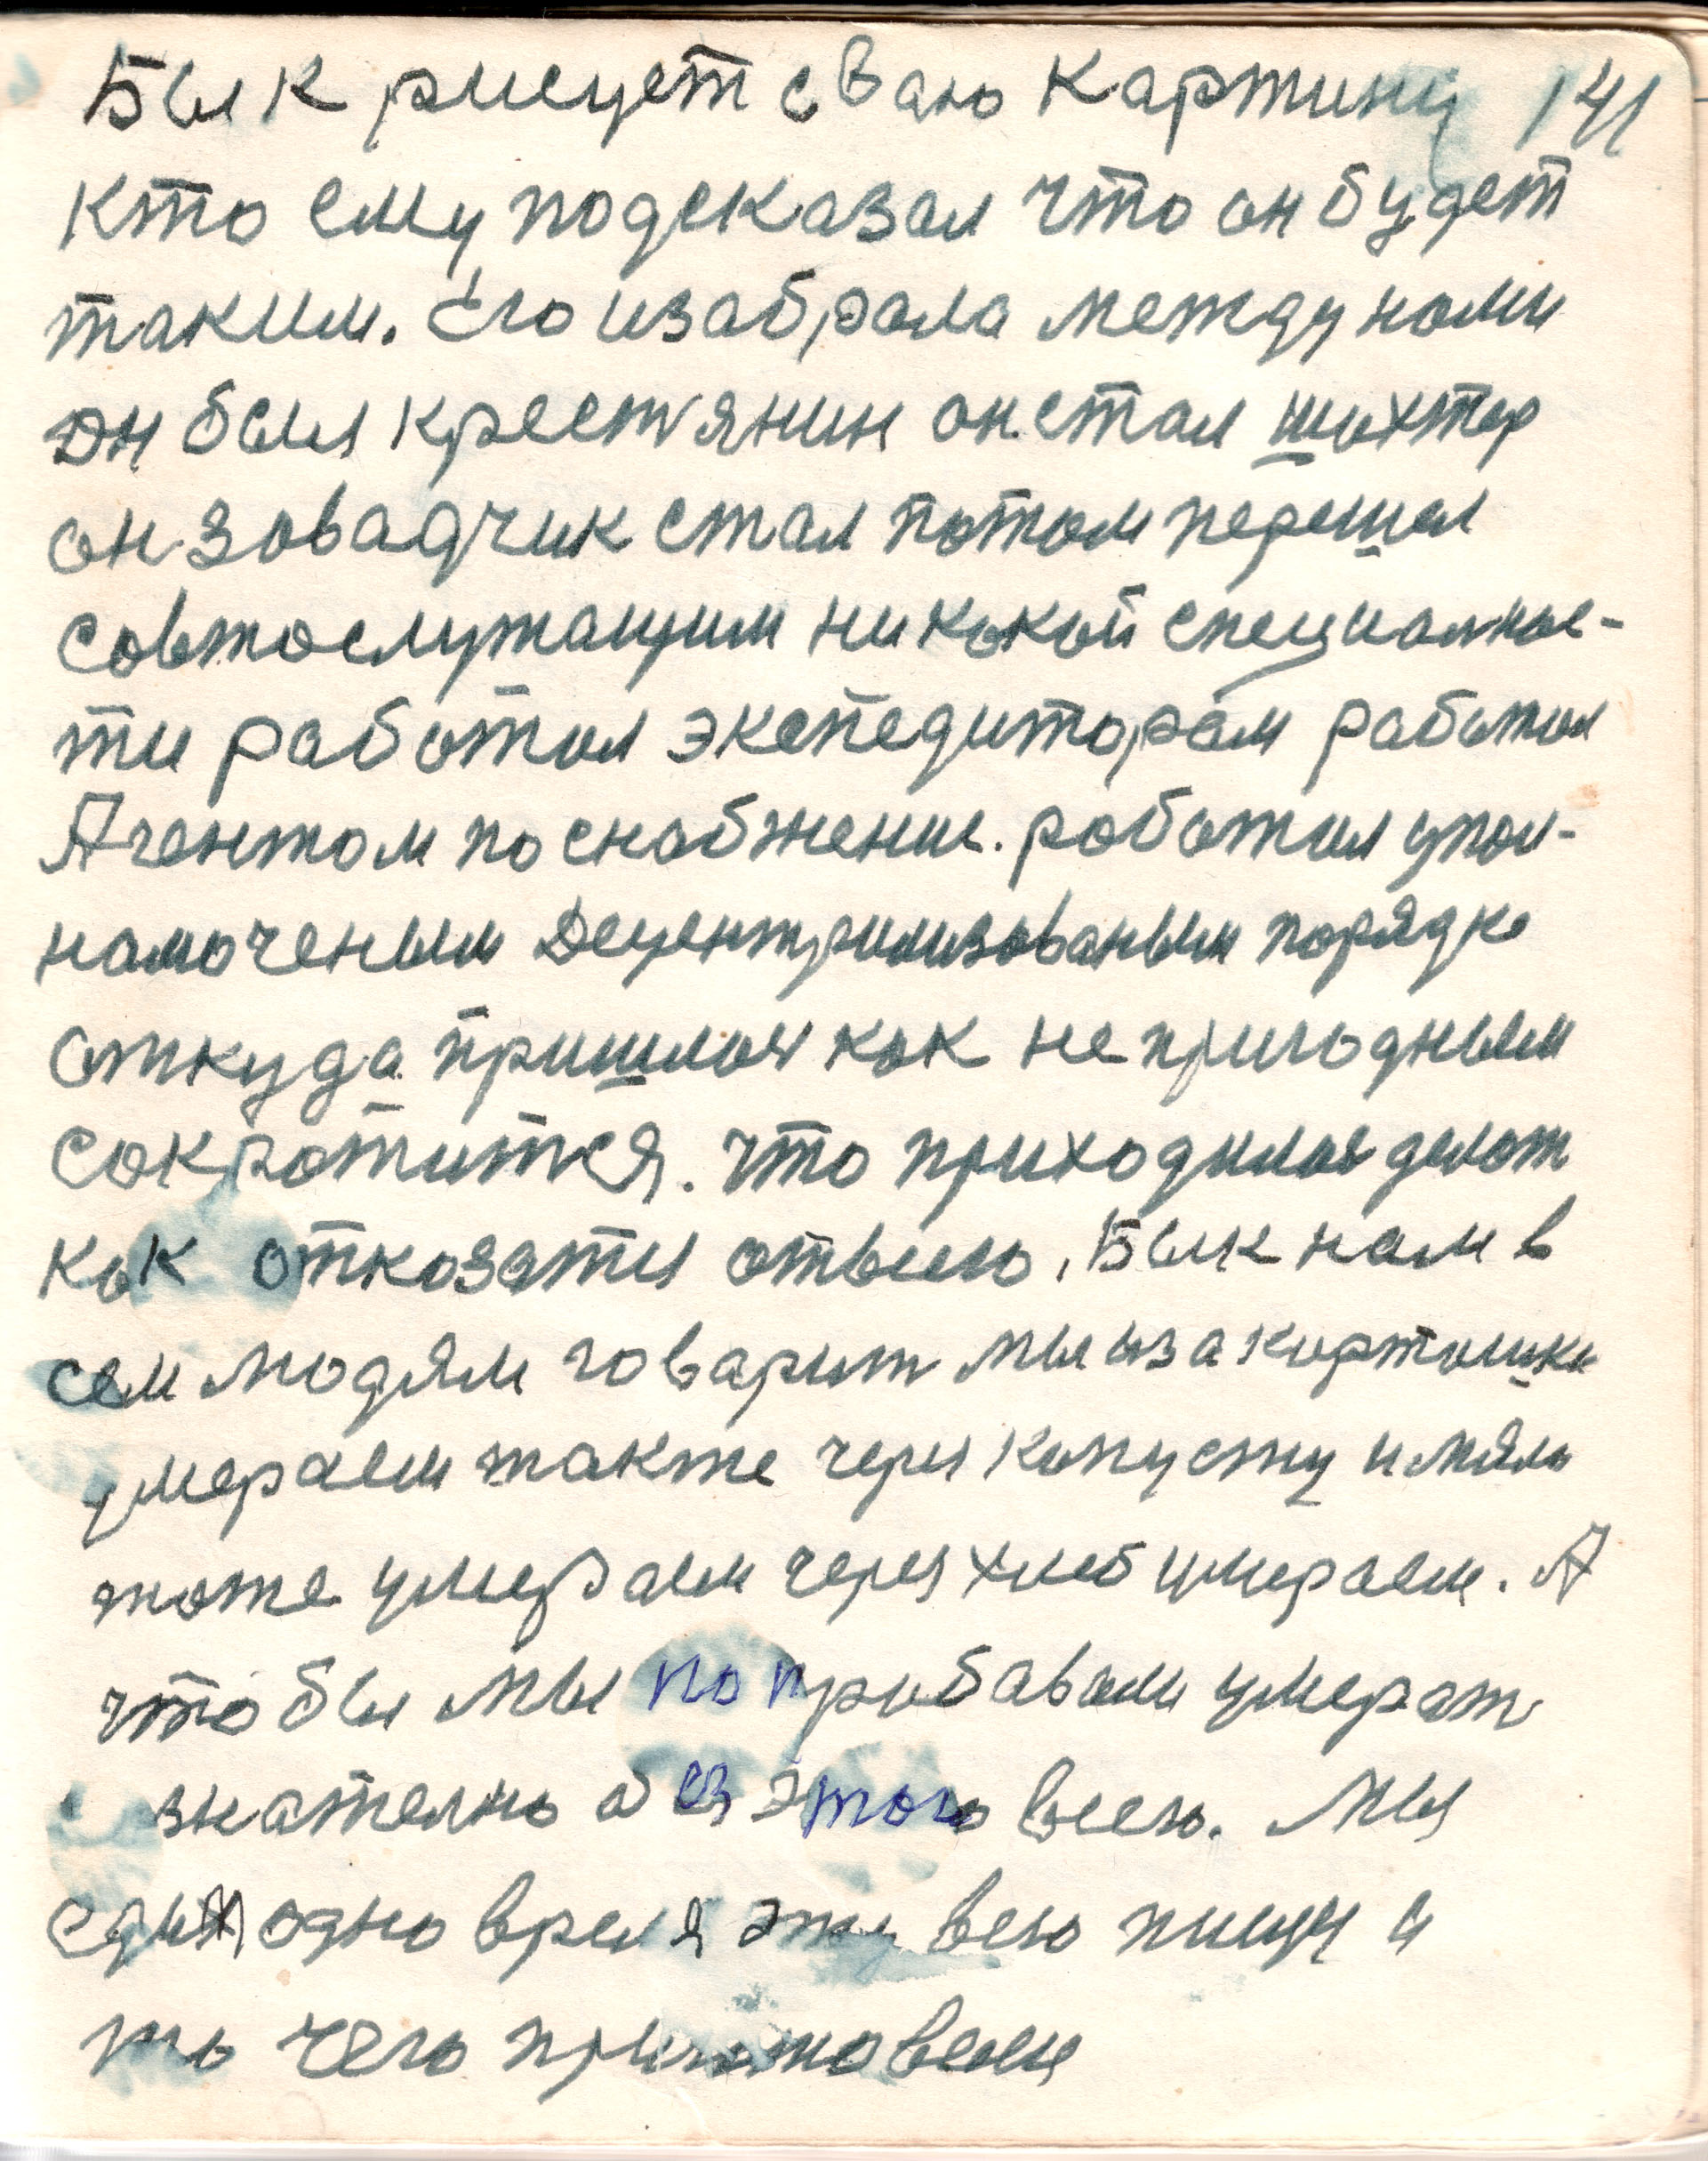 Бык рисует сваю картину 141
кто ему подсказал что он будет
таким. Его изабрала между нами
Он был крестянин он стал шахтер
он завадчик стал потом перешол
совтослужащим никокой специалнос-
ти работал экспедиторам работал
Агентом по снабжение. работал упол-
намоченым Децентрализованым порядке
откуда пришлось как не пригодным
сократится. что приходилос делат
как отказатся отвсего, Бык нам в
сем людям говарит мы иза картошки
умераем также через капусту и мяло
тоже умераем через хлеб умераем. А
что бы мы попрабавали умерат
знателно без этого всего. Мы
едим одно время эту всю пищу и
то чего приготовели